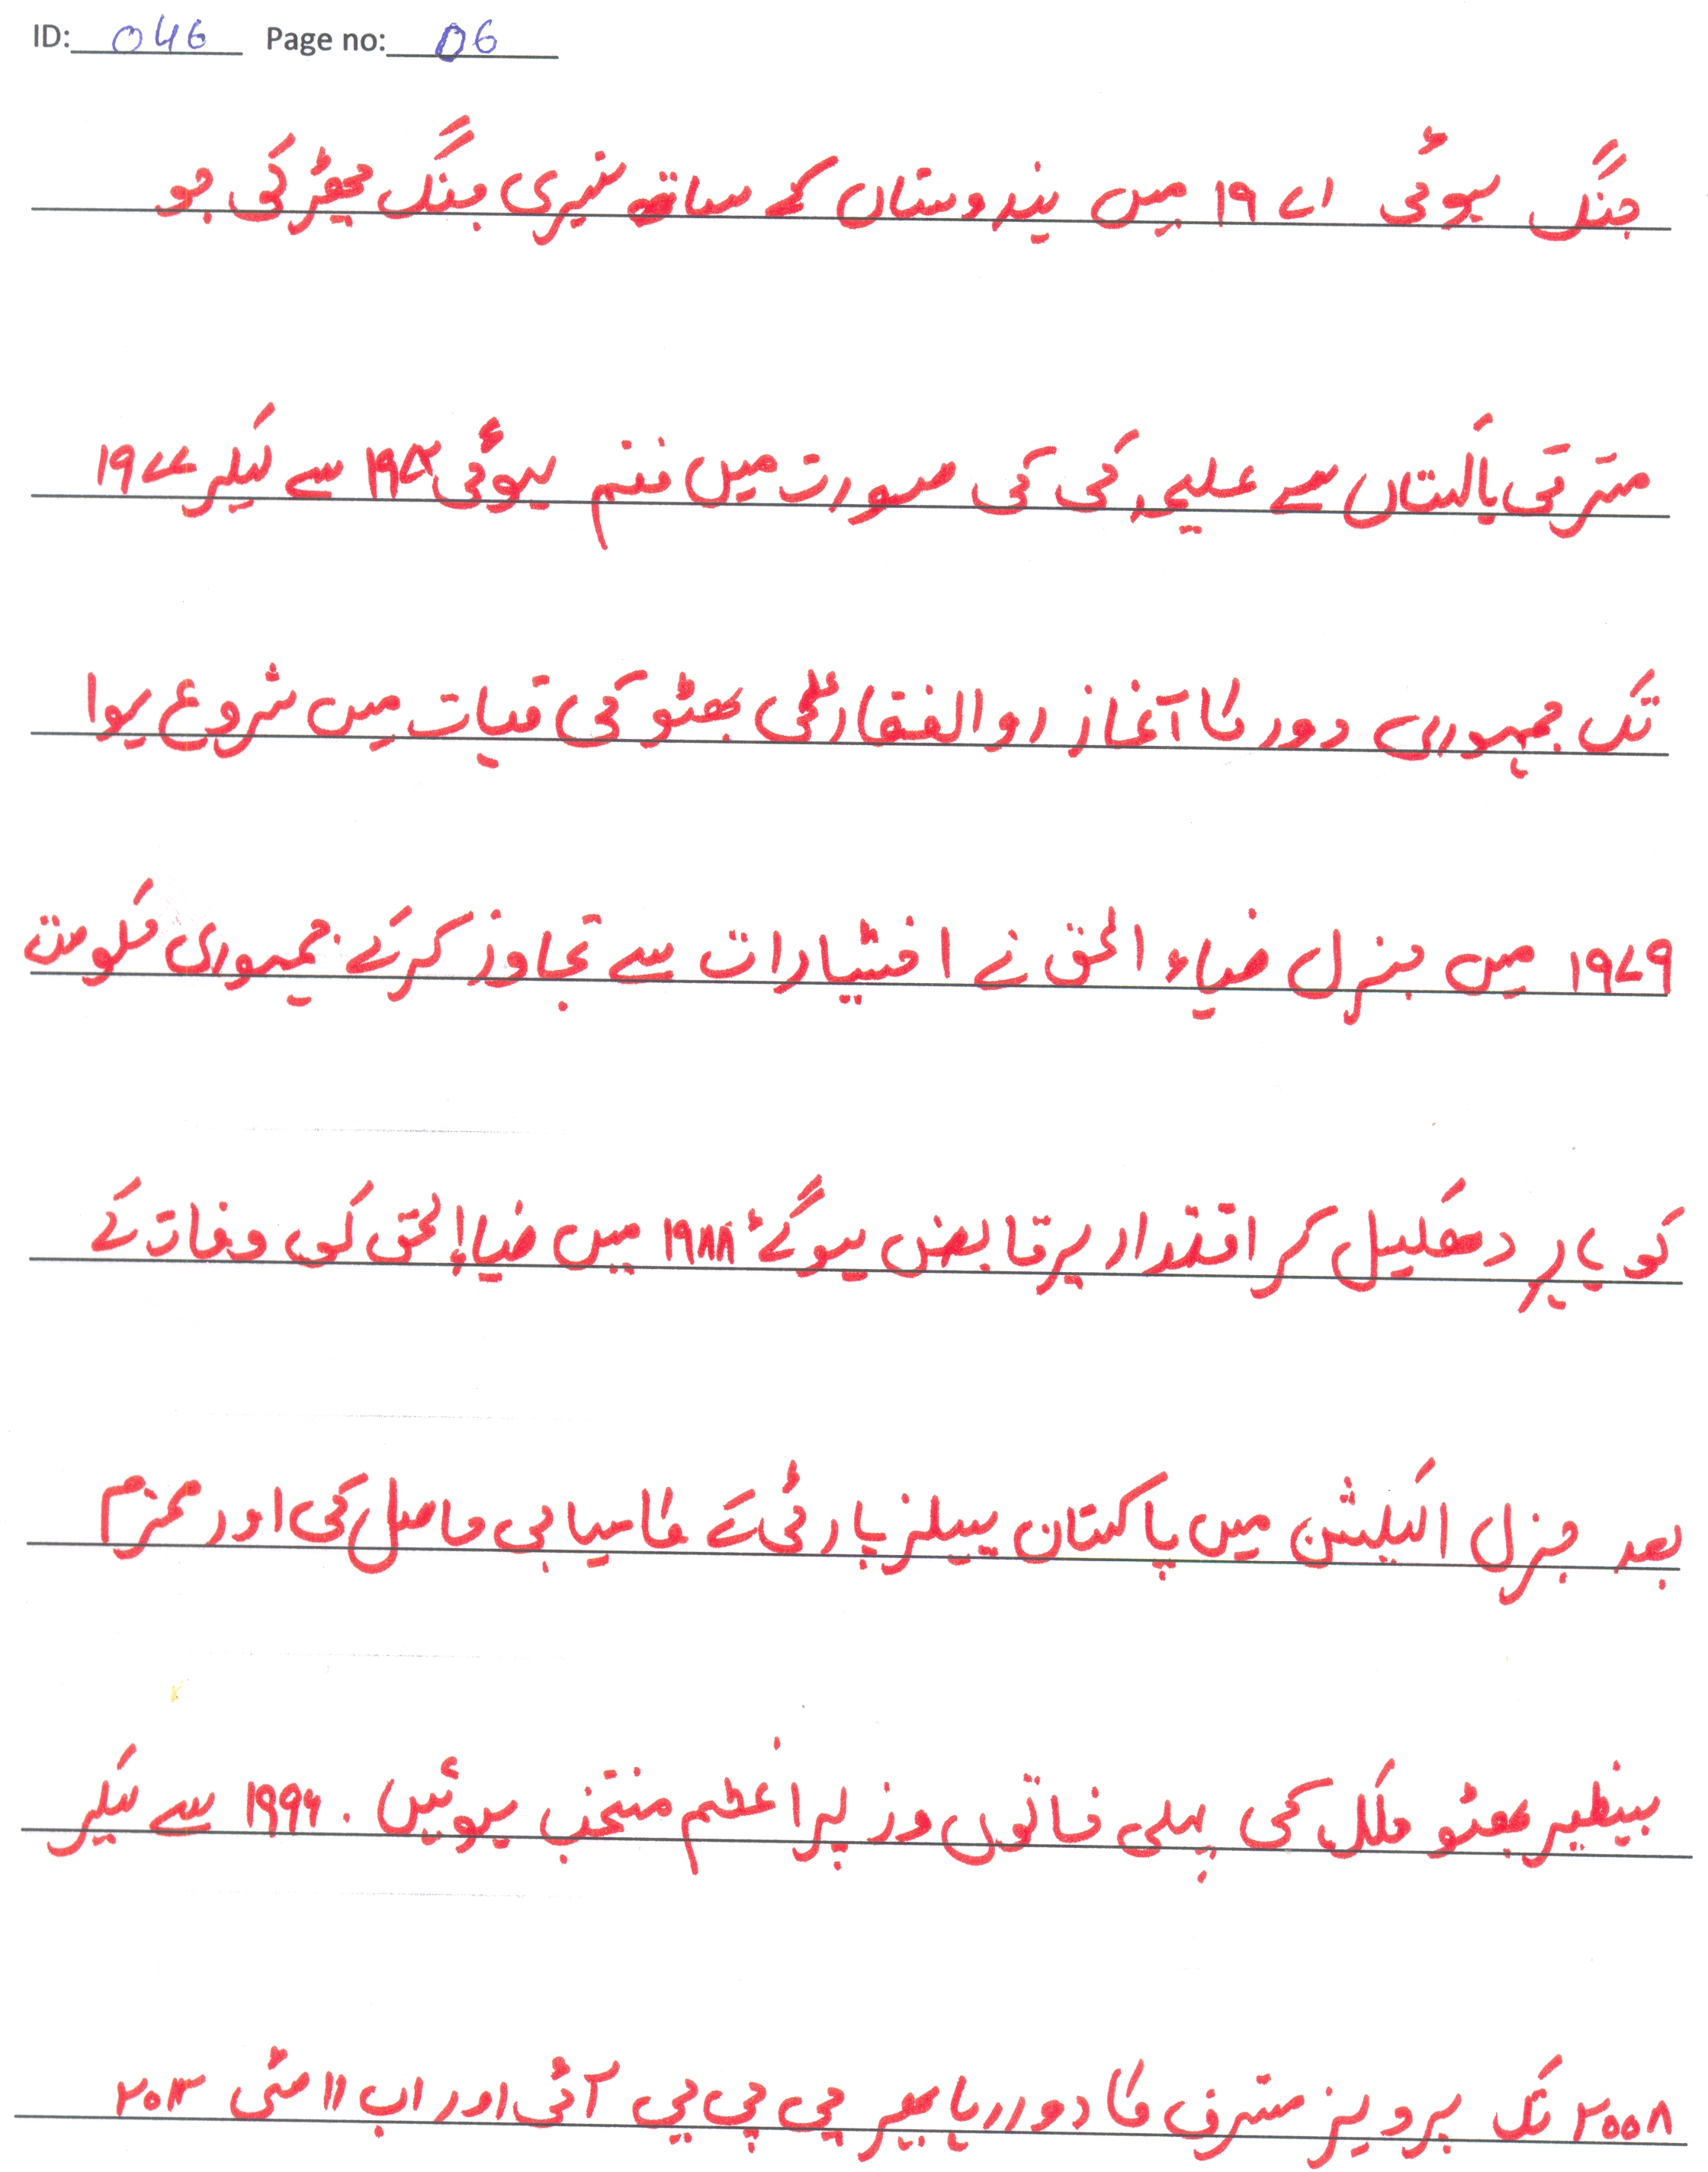 ID: 046 Page no: 06
جنگ ہوئی ۱۹۷۱ میں ہندوستان کے ساتھ تیسری جنگ چھڑ گئی جو
مشرقی پاکستان سے علیحدگی کی صورت میں ختم ہوئی ۱۹۷۲ سے لیکر ۱۹۷۷
تک جمہوری دور کا آغاز ذوالفقار علی بھٹو کی قیات میں شروع ہوا
۱۹۷۹ میں جنرل ضیاء الحق نے اختیارات سے تجاوز کرکے جمہوری حکومت
کو باہر دھکیل کر اقتدار پر قابض ہوگئے ۱۹۸۸ میں ضیاءالحق کی وفات کے
بعد جنرل الیکشن میں پاکستان پیپلز پارٹی نے کامیابی حاصل کی اور محترمہ
بینظیر بھٹو ملک کی پہلی خاتون وزیراعظم منتخب ہوئیں. ۱۹۹۶ سے لیکر
۲۰۰۸ تک پرویز مشرف کا دور رہا پھر پی پی پی آئی اور اب ۱۱ مئی ۲۰۱۳